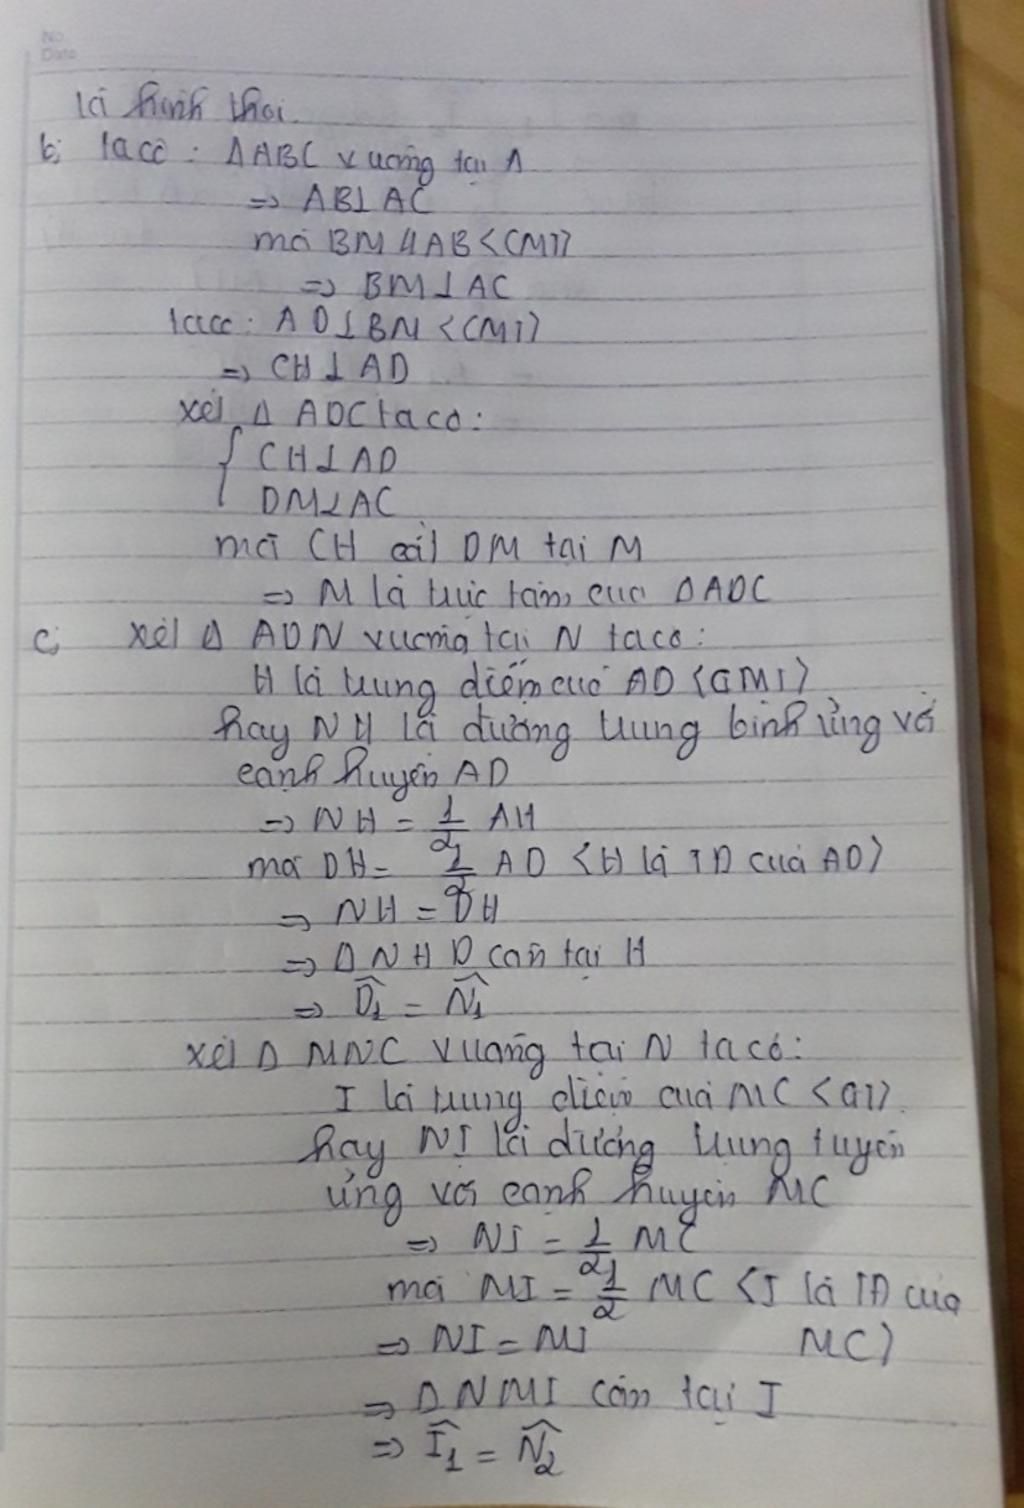 No.
Date
là hình thoi.
b; Ta có : ΔABC vuông tại A
=> AB⊥AC
mà BM//AB <CMT>
=> BM⊥AC
Ta có: AD⊥BM <CMT>
=> CH⊥AD
xét Δ ADC ta có:
{ CH⊥AD
DM⊥AC
mà CH cắt DM tại M
=> M là trực tâm của ΔADC
c; xét Δ ADN vuông tại N ta có:
H là trung điểm của AD <CMT>
hay NH là đường trung bình ứng với
cạnh huyền AD
=> NH = 1/2 AH
mà DH = 1/2 AD <H là TĐ của AD>
=> NH = DH
=> ΔNHD cân tại H
=> D̂1 = N̂1
xét Δ MNC vuông tại N ta có:
I là trung điểm của MC <GT>.
hay NI là đường trung tuyến
ứng với cạnh huyền MC
=> NI = 1/2 MC
mà MI = 1/2 MC <I là TĐ của
=> NI = MI MC>
=> ΔNMI cân tại I
=> Î1 = N̂2